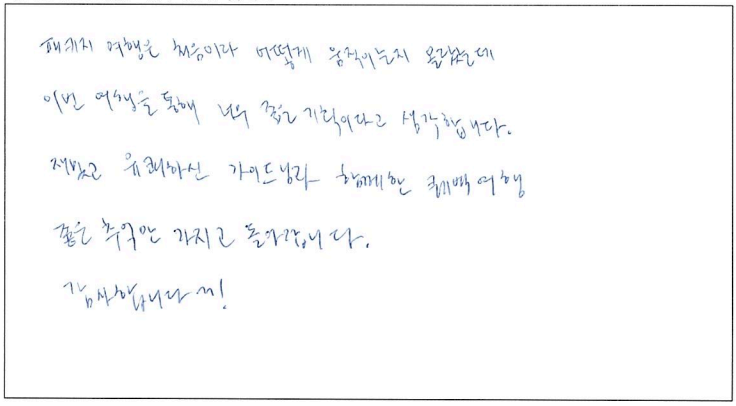 패키지 여행은 처음이라 어떻게 움직이는지 몰랐는데
이번 여행을 통해 너무 좋은 기획이라고 생각합니다.
재밌고 유쾌하신 가이드님과 함께한 여행
좋은 추억만 가지고 돌아갑니다.
감사합니다